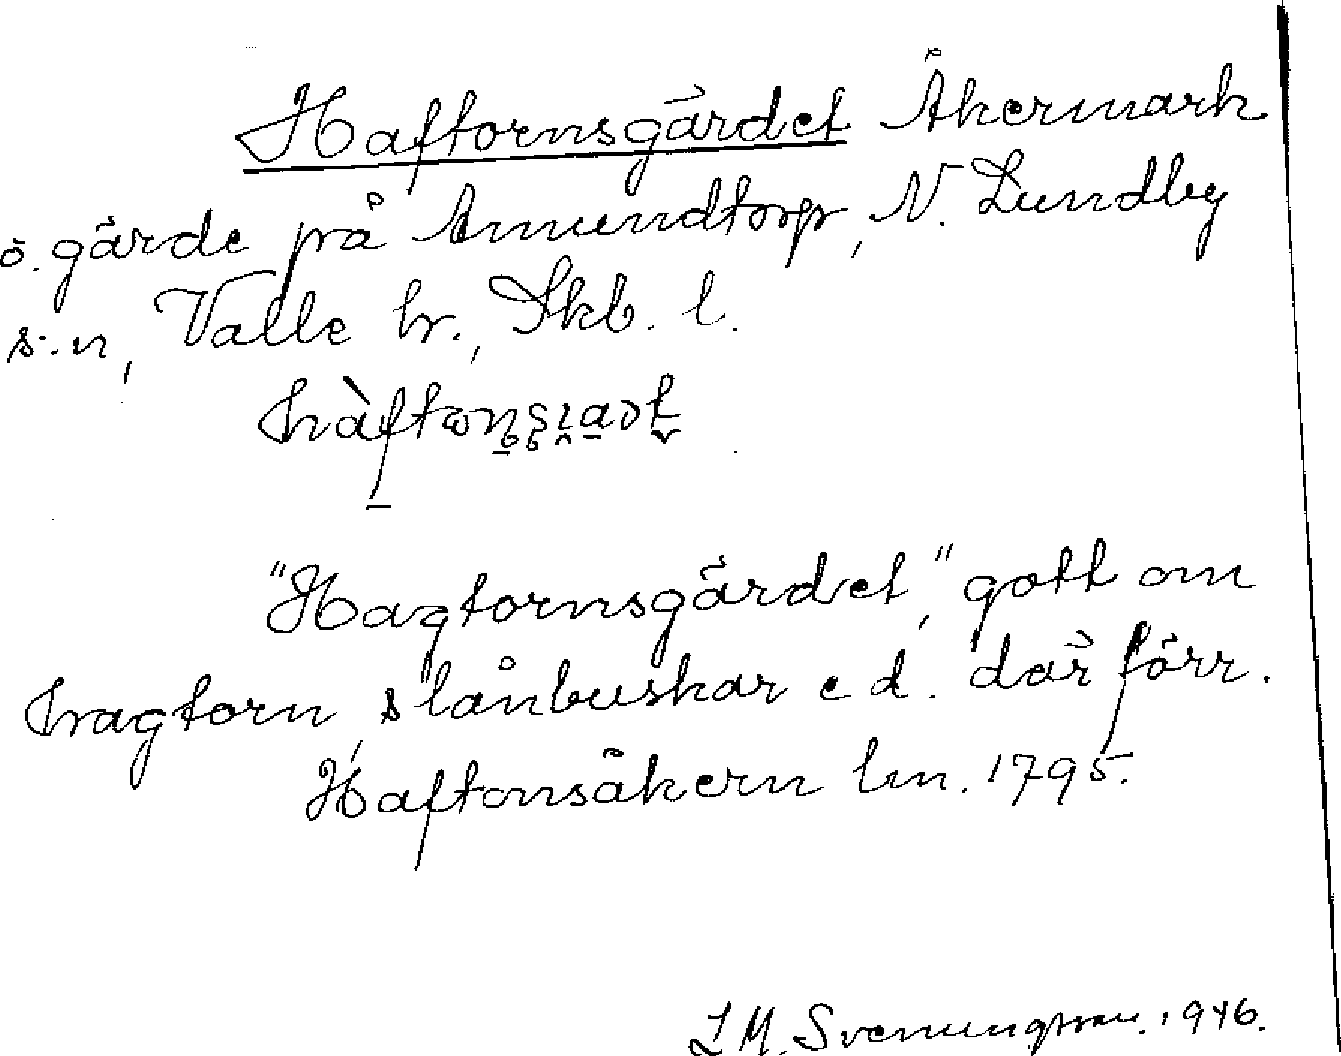 Haftornsgärdet Åkermark
o. gärde på Amundtorp, N. Lundby
s:n, Valle hr., Skb. l.
"Hagtornsgärdet", gott om
hagtorn, slånbuskar e d. där förr.
Haftonsåkern lm. 1795.
S.M. Svenungsson. 1946.